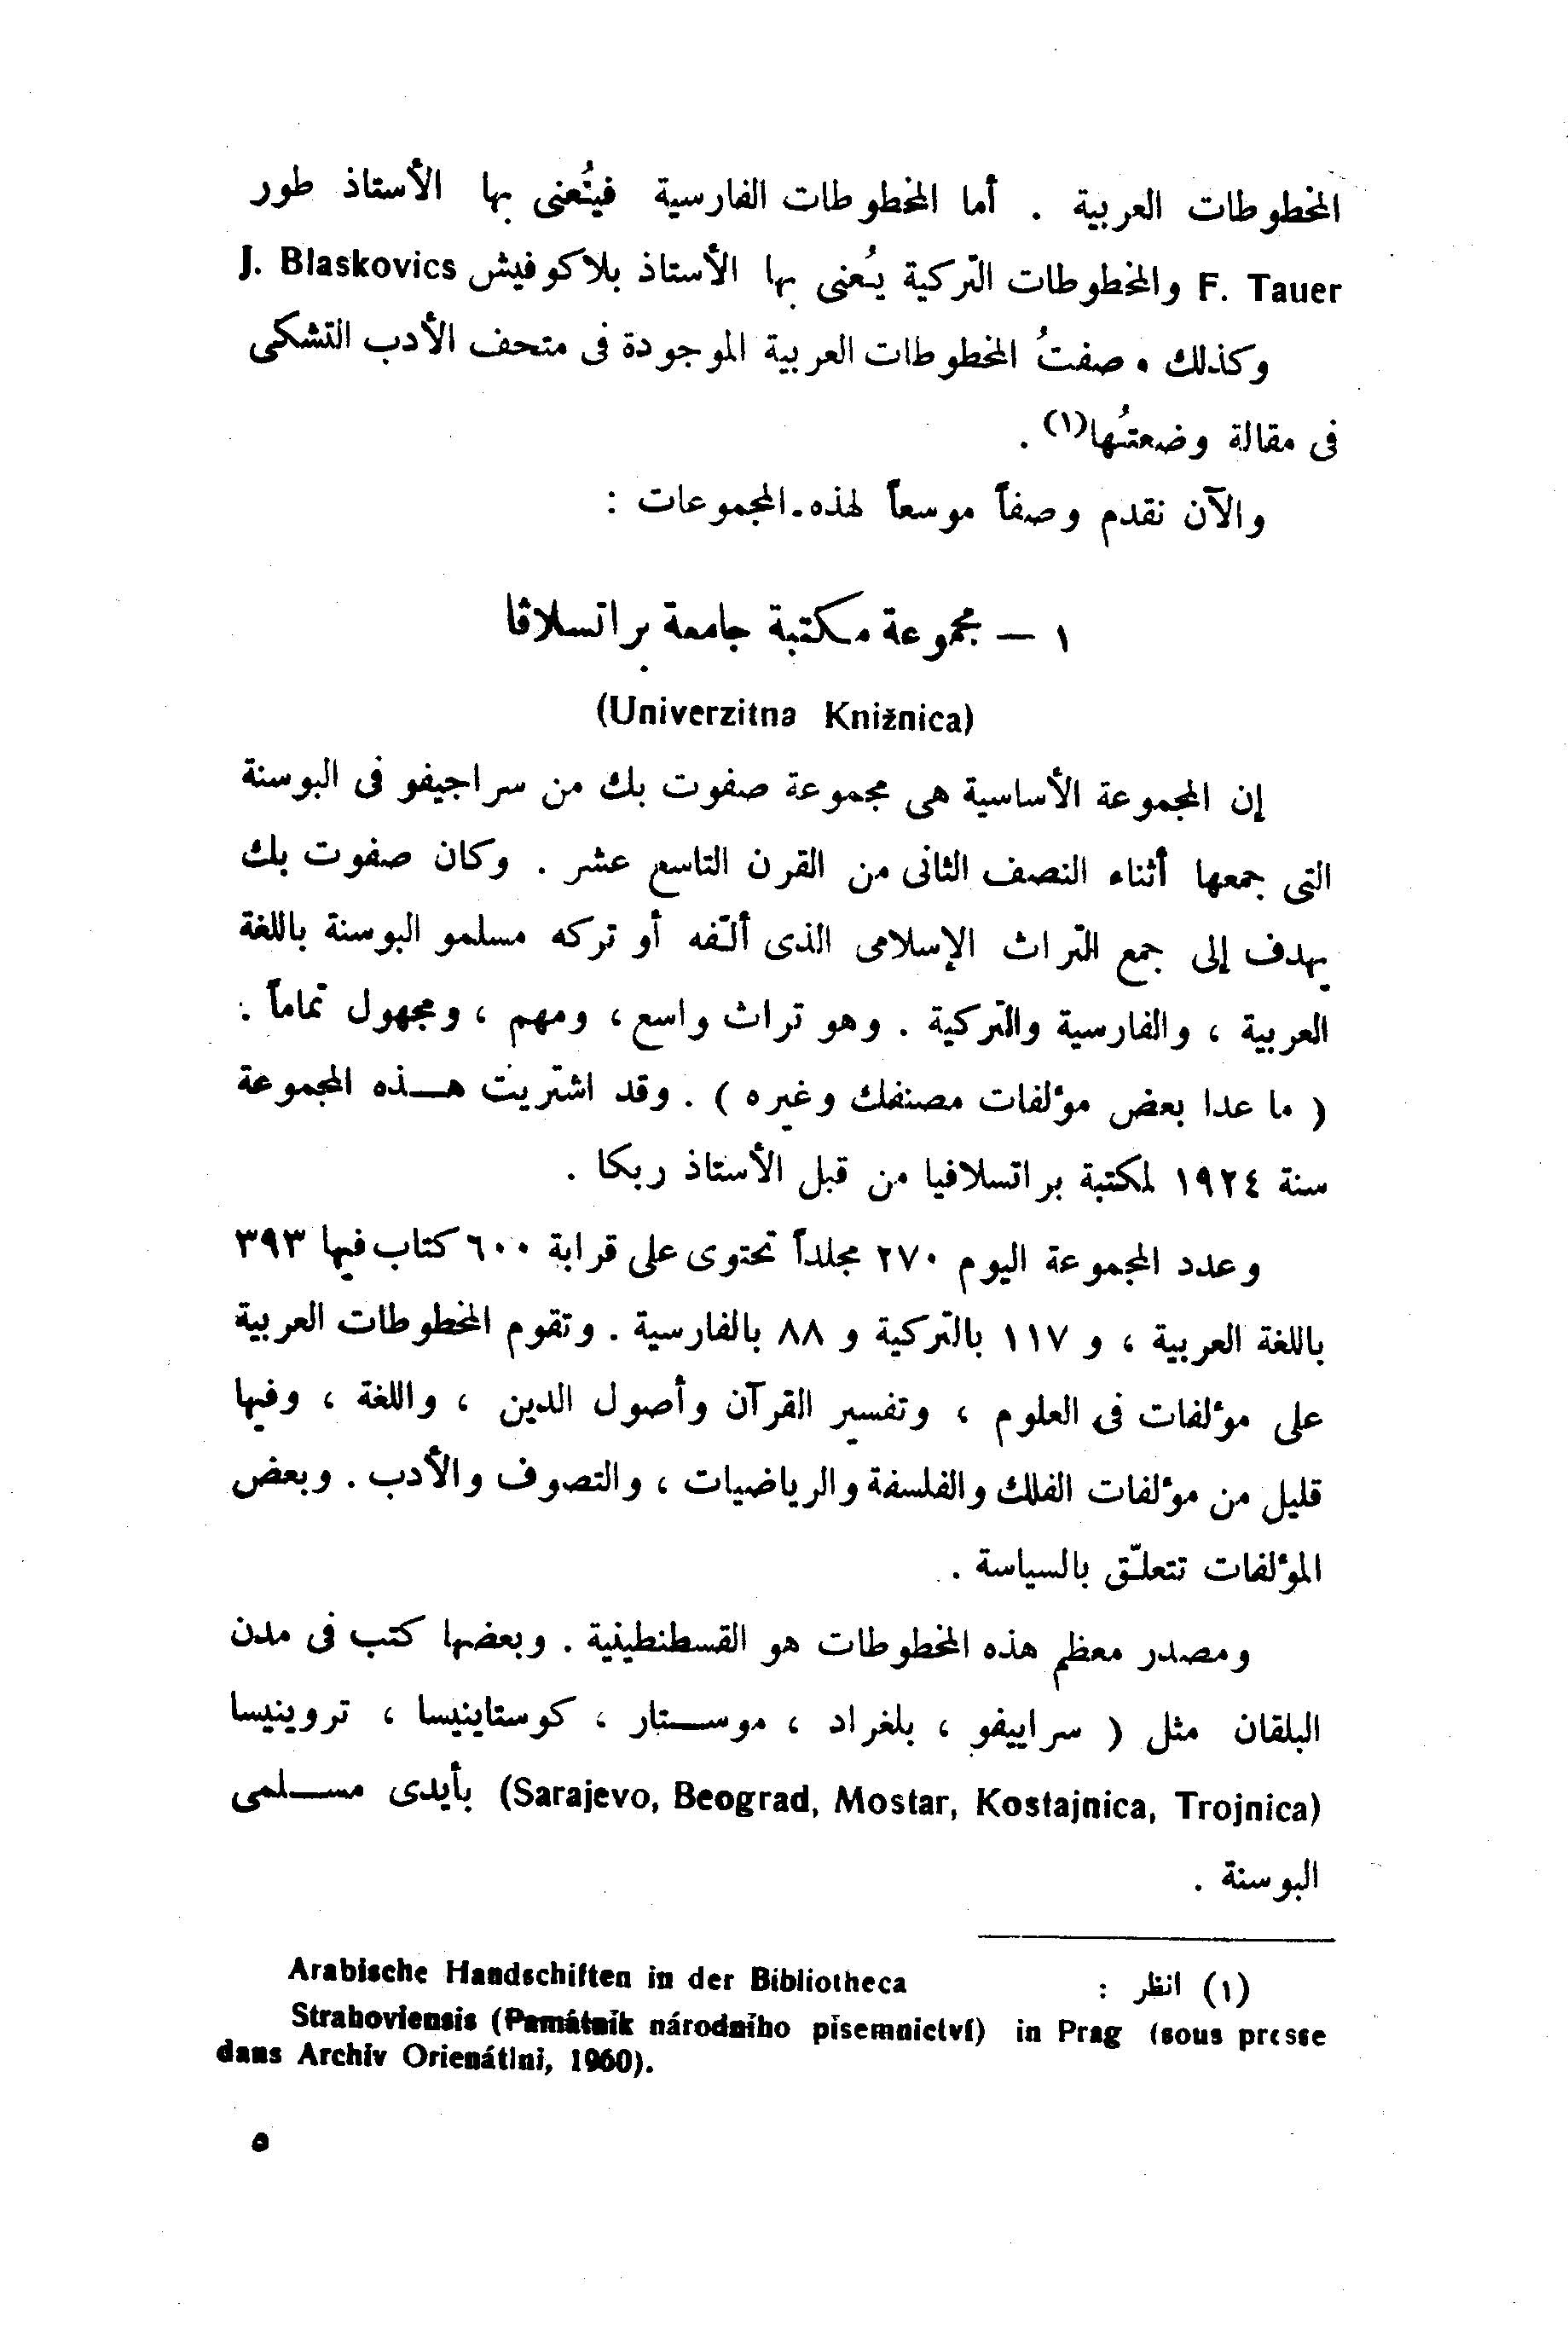 المخطوطات العربية . أما المخطوطات الفارسية فيُعنى بها الأستاذ طور
F. Tauer والمخطوطات التركية يُعنى بها الأستاذ بلاكوفيش J. Blaskovics
وكذلك وصفتُ المخطوطات العربية الموجودة فى متحف الأدب التشكى
فى مقالة وضعتُها(١) .
والآن نقدم وصفاً موسعاً لهذه المجموعات :
١ – مجموعة مكتبة جامعة براتسلاڤا
(Univerzitna Knižnica)
إن المجموعة الأساسية هى مجموعة صفوت بك من سراجيفو فى البوسنة
التى جمعها أثناء النصف الثانى من القرن التاسع عشر . وكان صفوت بك
يهدف إلى جمع التراث الإسلامى الذى ألّفه أو تركه مسلمو البوسنة باللغة
العربية ، والفارسية والتركية . وهو تراث واسع ، ومهم ، ومجهول تماماً .
( ما عدا بعض مؤلفات مصنفك وغيره ) . وقد اشتريت هـذه المجموعة
سنة ١٩٢٤ لمكتبة براتسلافيا من قبل الأستاذ ربكا .
وعدد المجموعة اليوم ٢٧٠ مجلداً تحتوى على قرابة ٦٠٠ كتاب فيها ٣٩٣
باللغة العربية ، و ١١٧ بالتركية و ٨٨ بالفارسية . وتقوم المخطوطات العربية
على مؤلفات فى العلوم ، وتفسير القرآن وأصول الدين ، واللغة ، وفيها
قليل من مؤلفات الفلك والفلسفة والرياضيات ، والتصوف والأدب . وبعض
المؤلفات تتعلّق بالسياسة .
ومصدر معظم هذه المخطوطات هو القسطنطينية . وبعضها كتب فى مدن
البلقان مثل ( سراييفو ، بلغراد ، موسـتار ، كوستاينيسا ، تروينيسا
(Sarajevo, Beograd, Mostar, Kostajnica, Trojnica) بأيدى مسـلمى
البوسنة .
(١) انظر : Arabische Handschiften in der Bibliotheca
Strahoviensis (Památník národního písemnictví) in Prag (sous presse
dans Archiv Orienátlni, 1960).
٥